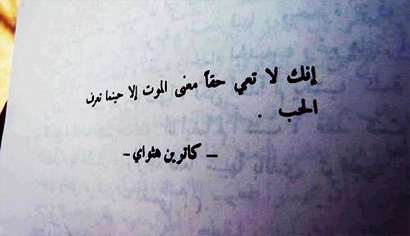 إنك لا تعي حقاً معنى الموت إلا حينما تعرف
الحب .
– كاترين هثواي –